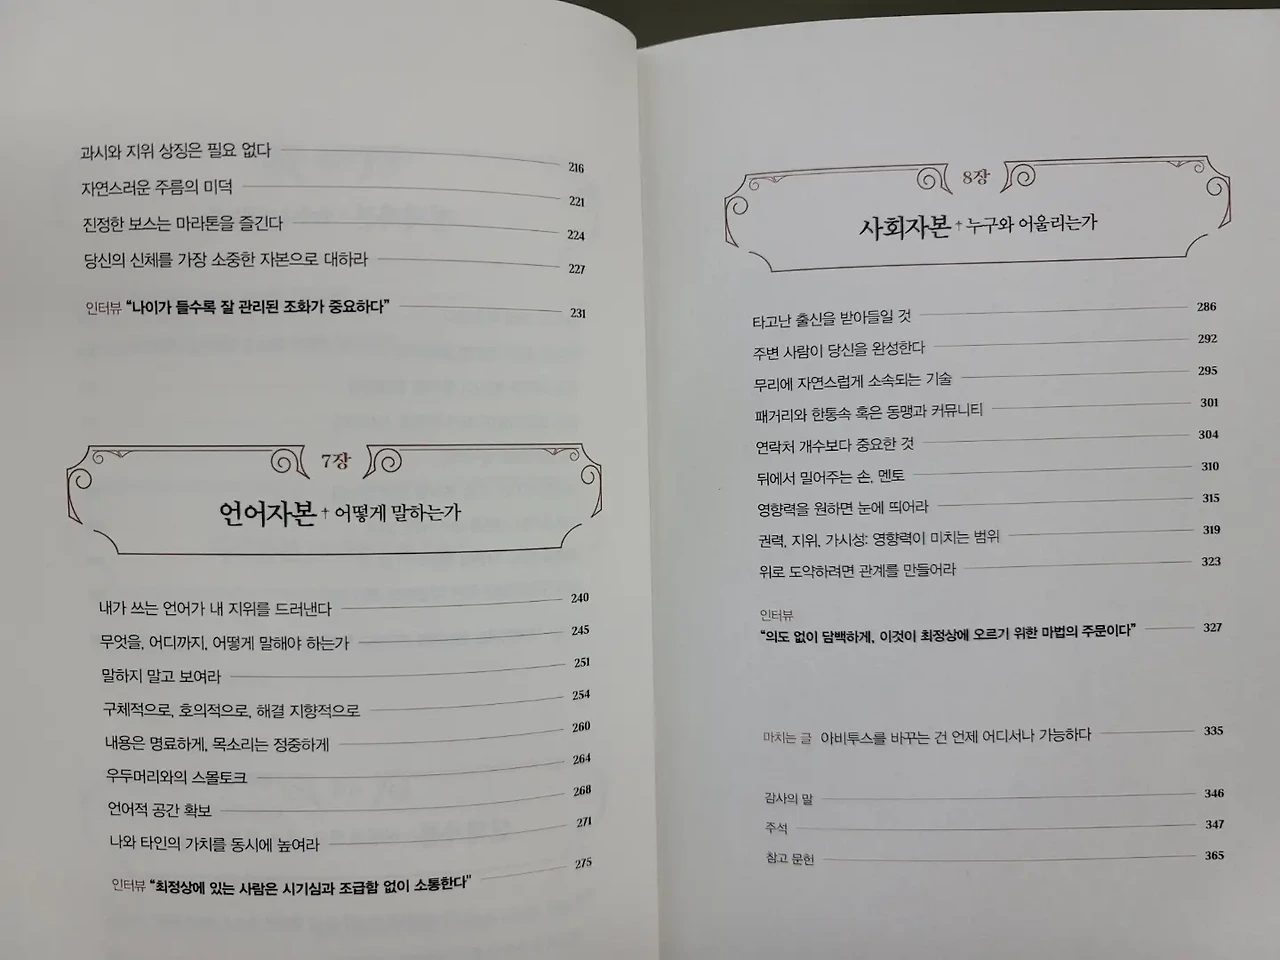 과시와 지위 상징은 필요 없다 216
자연스러운 주름의 미덕 221
진정한 보스는 마라톤을 즐긴다 224
당신의 신체를 가장 소중한 자본으로 대하라 227
인터뷰 “나이가 들수록 잘 관리된 조화가 중요하다” 231
7장
언어자본 † 어떻게 말하는가
내가 쓰는 언어가 내 지위를 드러낸다 240
무엇을, 어디까지, 어떻게 말해야 하는가 245
말하지 말고 보여라 251
구체적으로, 호의적으로, 해결 지향적으로 254
내용은 명료하게, 목소리는 정중하게 260
우두머리와의 스몰토크 264
언어적 공간 확보 268
나와 타인의 가치를 동시에 높여라 271
인터뷰 “최정상에 있는 사람은 시기심과 조급함 없이 소통한다” 275
8장
사회자본 † 누구와 어울리는가
타고난 출신을 받아들일 것 286
주변 사람이 당신을 완성한다 292
무리에 자연스럽게 소속되는 기술 295
패거리와 한통속 혹은 동맹과 커뮤니티 301
연락처 개수보다 중요한 것 304
뒤에서 밀어주는 손, 멘토 310
영향력을 원하면 눈에 띄어라 315
권력, 지위, 가시성: 영향력이 미치는 범위 319
위로 도약하려면 관계를 만들어라 323
인터뷰
“의도 없이 담백하게, 이것이 최정상에 오르기 위한 마법의 주문이다” 327
마치는 글 아비투스를 바꾸는 건 언제 어디서나 가능하다 335
감사의 말 346
주석 347
참고 문헌 365